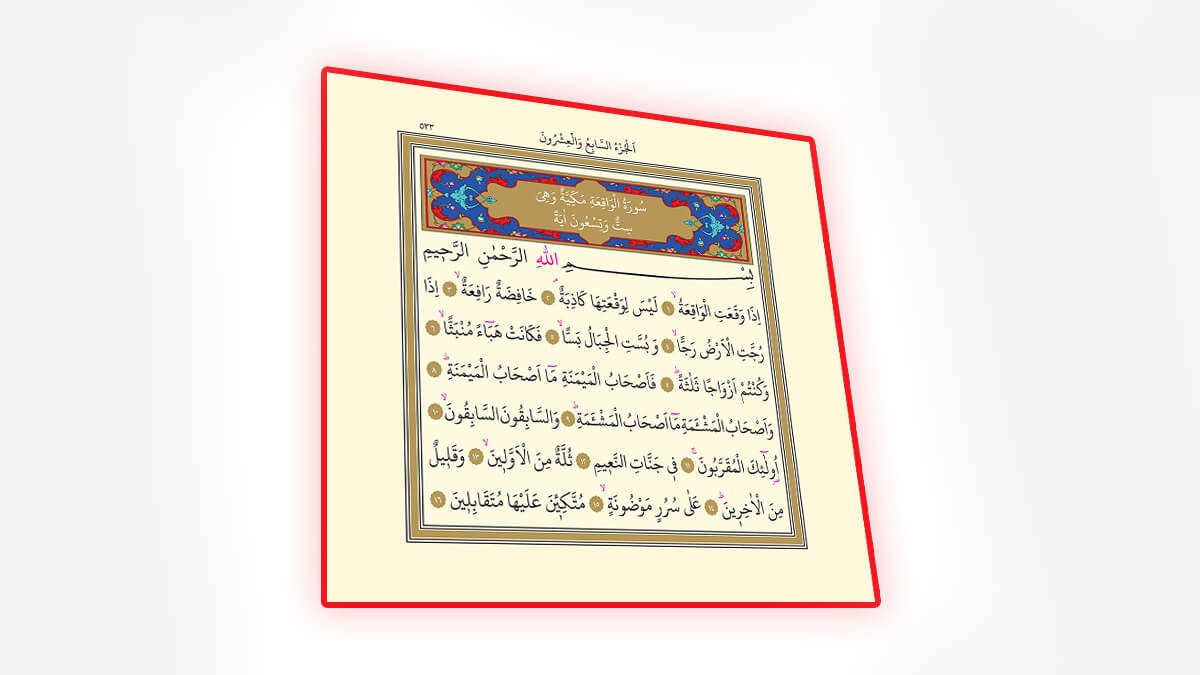 ٥٣٣
اَلْجُزْءُ السَّابِعُ وَالْعِشْرُونَ
سُورَةُ الْوَاقِعَةِ مَكِّيَّةٌ وَهِىَ
سِتٌّ وَتِسْعُونَ اٰيَةً
بِسْمِ اللّٰهِ الرَّحْمٰنِ الرَّحٖيمِ
اِذَا وَقَعَتِ الْوَاقِعَةُۙ ﴿١﴾ لَيْسَ لِوَقْعَتِهَا كَاذِبَةٌۘ ﴿٢﴾ خَافِضَةٌ رَافِعَةٌۙ ﴿٣﴾ اِذَا
رُجَّتِ الْاَرْضُ رَجًّاۙ ﴿٤﴾ وَبُسَّتِ الْجِبَالُ بَسًّاۙ ﴿٥﴾ فَكَانَتْ هَبَٓاءً مُنْبَثًّاۙ ﴿٦﴾
وَكُنْتُمْ اَزْوَاجًا ثَلٰثَةًۜ ﴿٧﴾ فَاَصْحَابُ الْمَيْمَنَةِ مَٓا اَصْحَابُ الْمَيْمَنَةِۜ ﴿٨﴾
وَاَصْحَابُ الْمَشْـَٔمَةِ مَٓا اَصْحَابُ الْمَشْـَٔمَةِۜ ﴿٩﴾ وَالسَّابِقُونَ السَّابِقُونَۙ ﴿١٠﴾
اُو۬لٰٓئِكَ الْمُقَرَّبُونَۚ ﴿١١﴾ فٖي جَنَّاتِ النَّعٖيمِ ﴿١٢﴾ ثُلَّةٌ مِنَ الْاَوَّلٖينَۙ ﴿١٣﴾ وَقَلٖيلٌ
مِنَ الْاٰخِرٖينَۜ ﴿١٤﴾ عَلٰى سُرُرٍ مَوْضُونَةٍۙ ﴿١٥﴾ مُتَّكِـٖٔينَ عَلَيْهَا مُتَقَابِلٖينَ ﴿١٦﴾